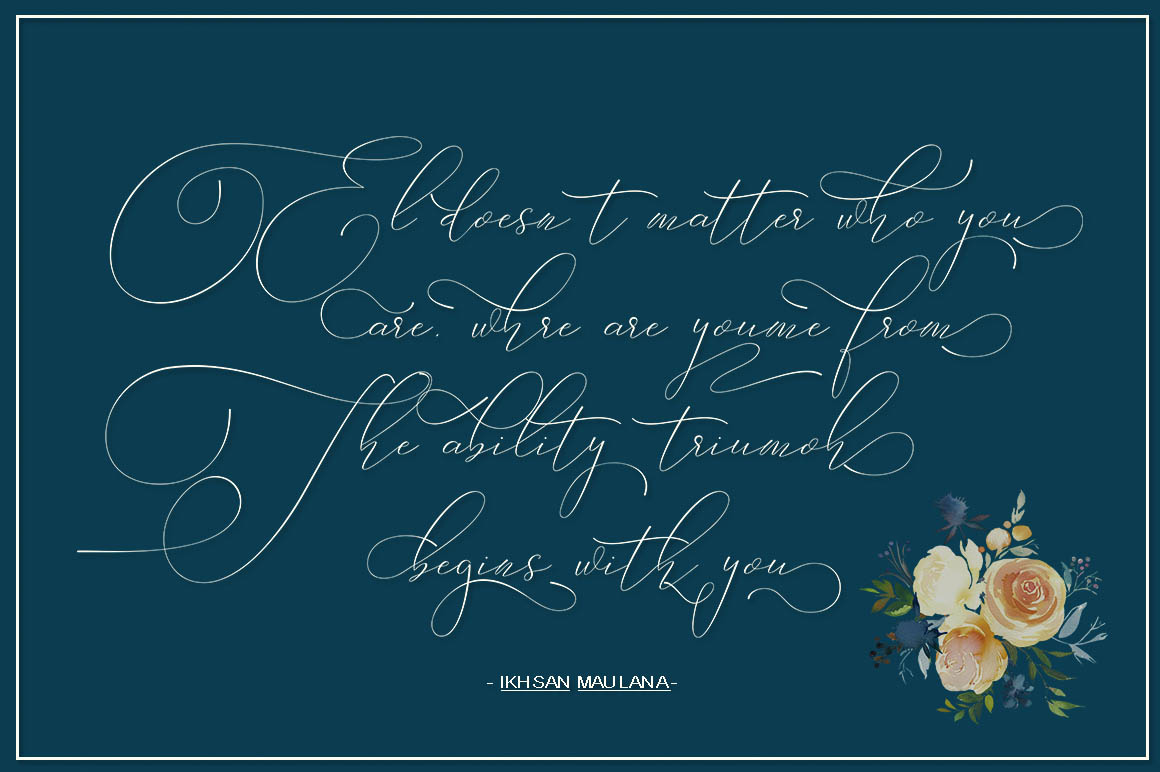 El doesn t matter who you
are. whre are youme from
The ability triumoh
begins with you
- IKHSAN MAULANA-